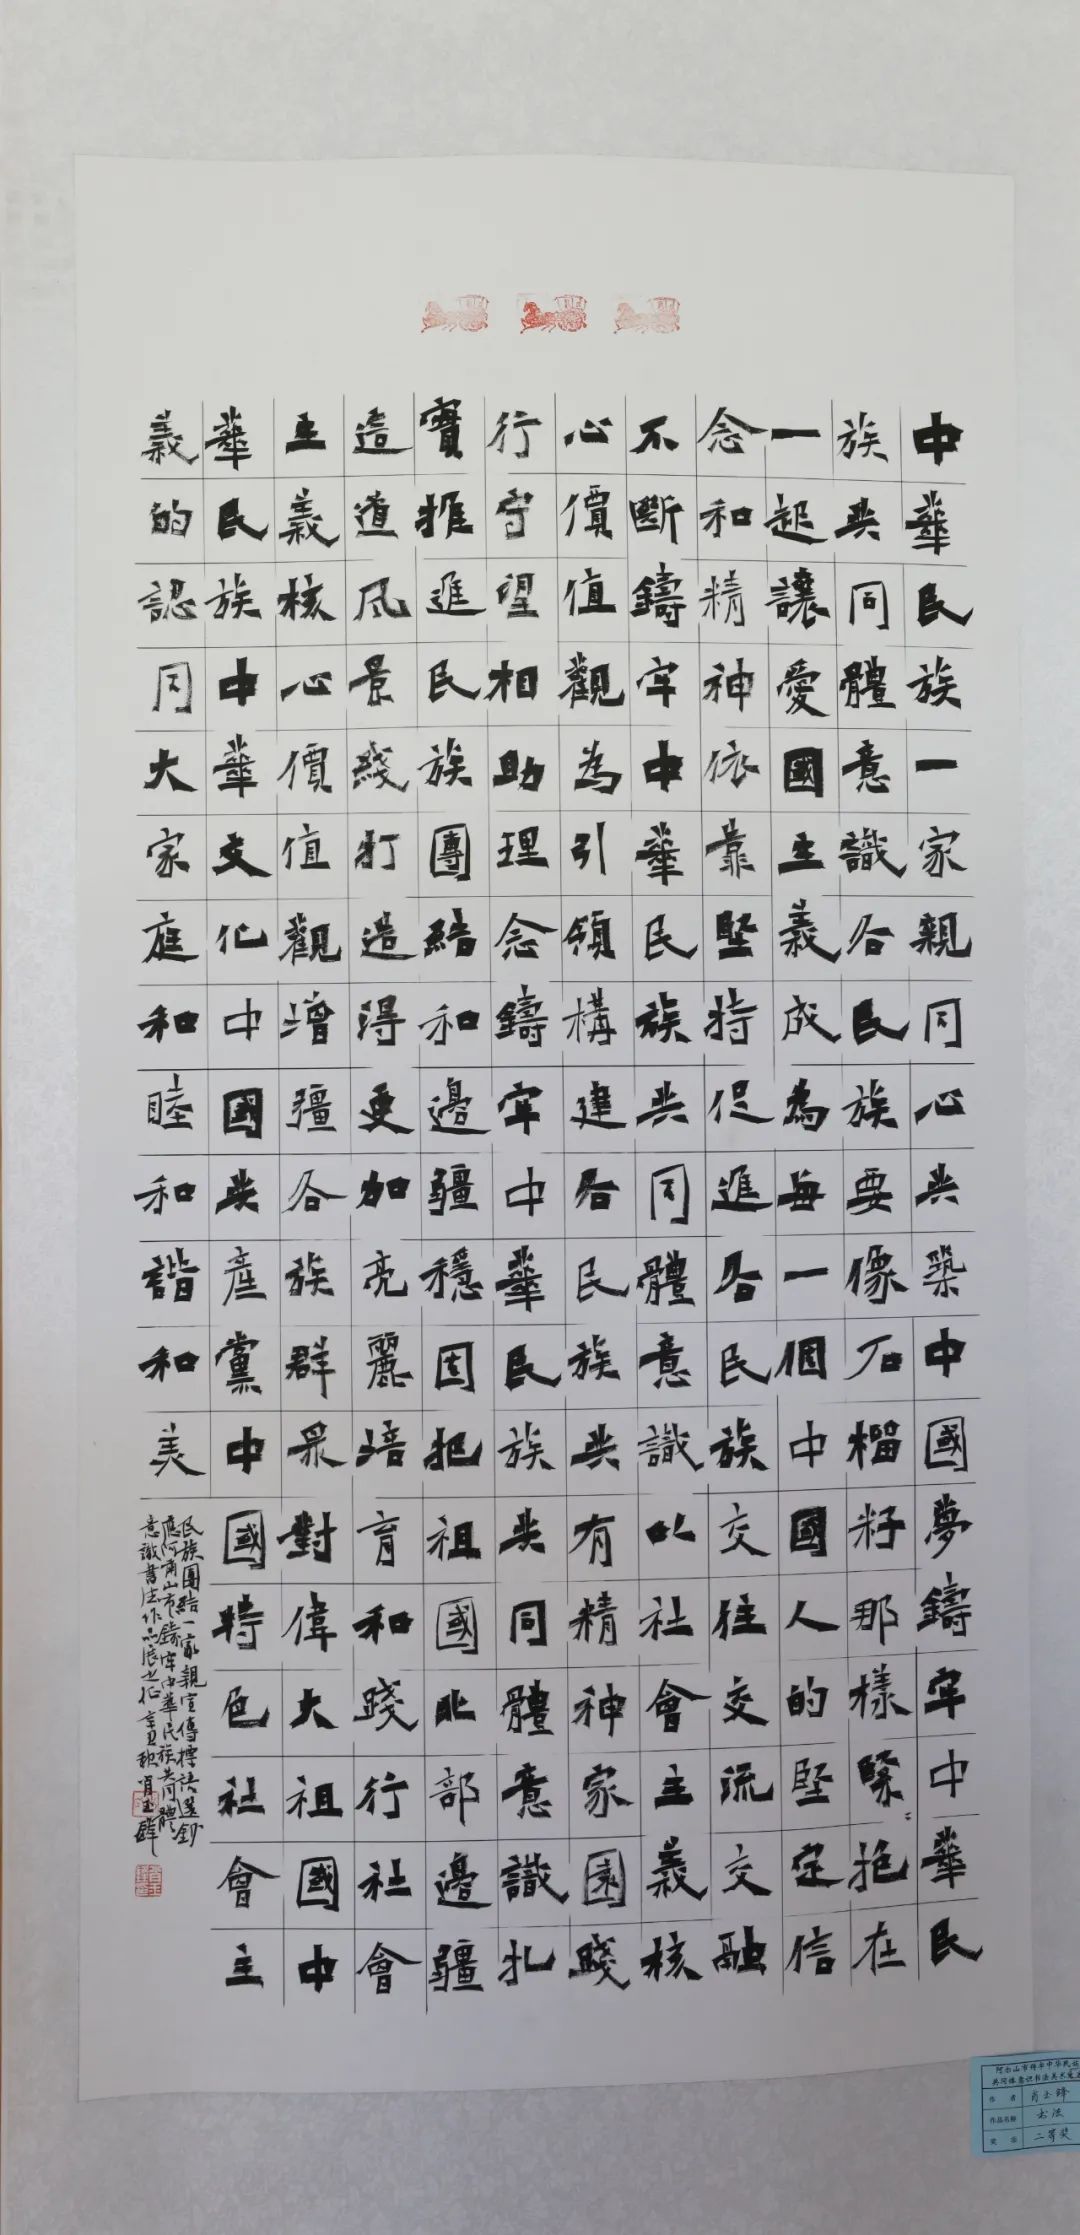 中華民族一家親同心共築中國夢鑄牢中華民
族共同體意識各民族要像石榴籽那樣緊〻抱在
一起讓愛國主義成為每一個中國人的堅定信
念和精神依靠堅持促進各民族交往交流交融
不斷鑄牢中華民族共同體意識以社會主義核
心價值觀為引領構建各民族共有精神家園踐
行守望相助理念鑄牢中華民族共同體意識扎
實推進民族團結和邊疆穩固把祖國北部邊疆
造道風景綫打造得更加亮麗培育和踐行社會
主義核心價值觀增疆各族群眾對偉大祖國中
華民族中華文化中國共產黨中國特色社會主
義的認同大家庭和睦和諧和美
民族團結一家親宣傳標語選鈔
應阿爾山市鑄牢中華民族共同體
意識書法作品展之征辛丑秋肖玉
阿尔山市铸牢中华民族
共同体意识书法美术
作者 肖玉锋
作品名称 书法
奖项 二等奖